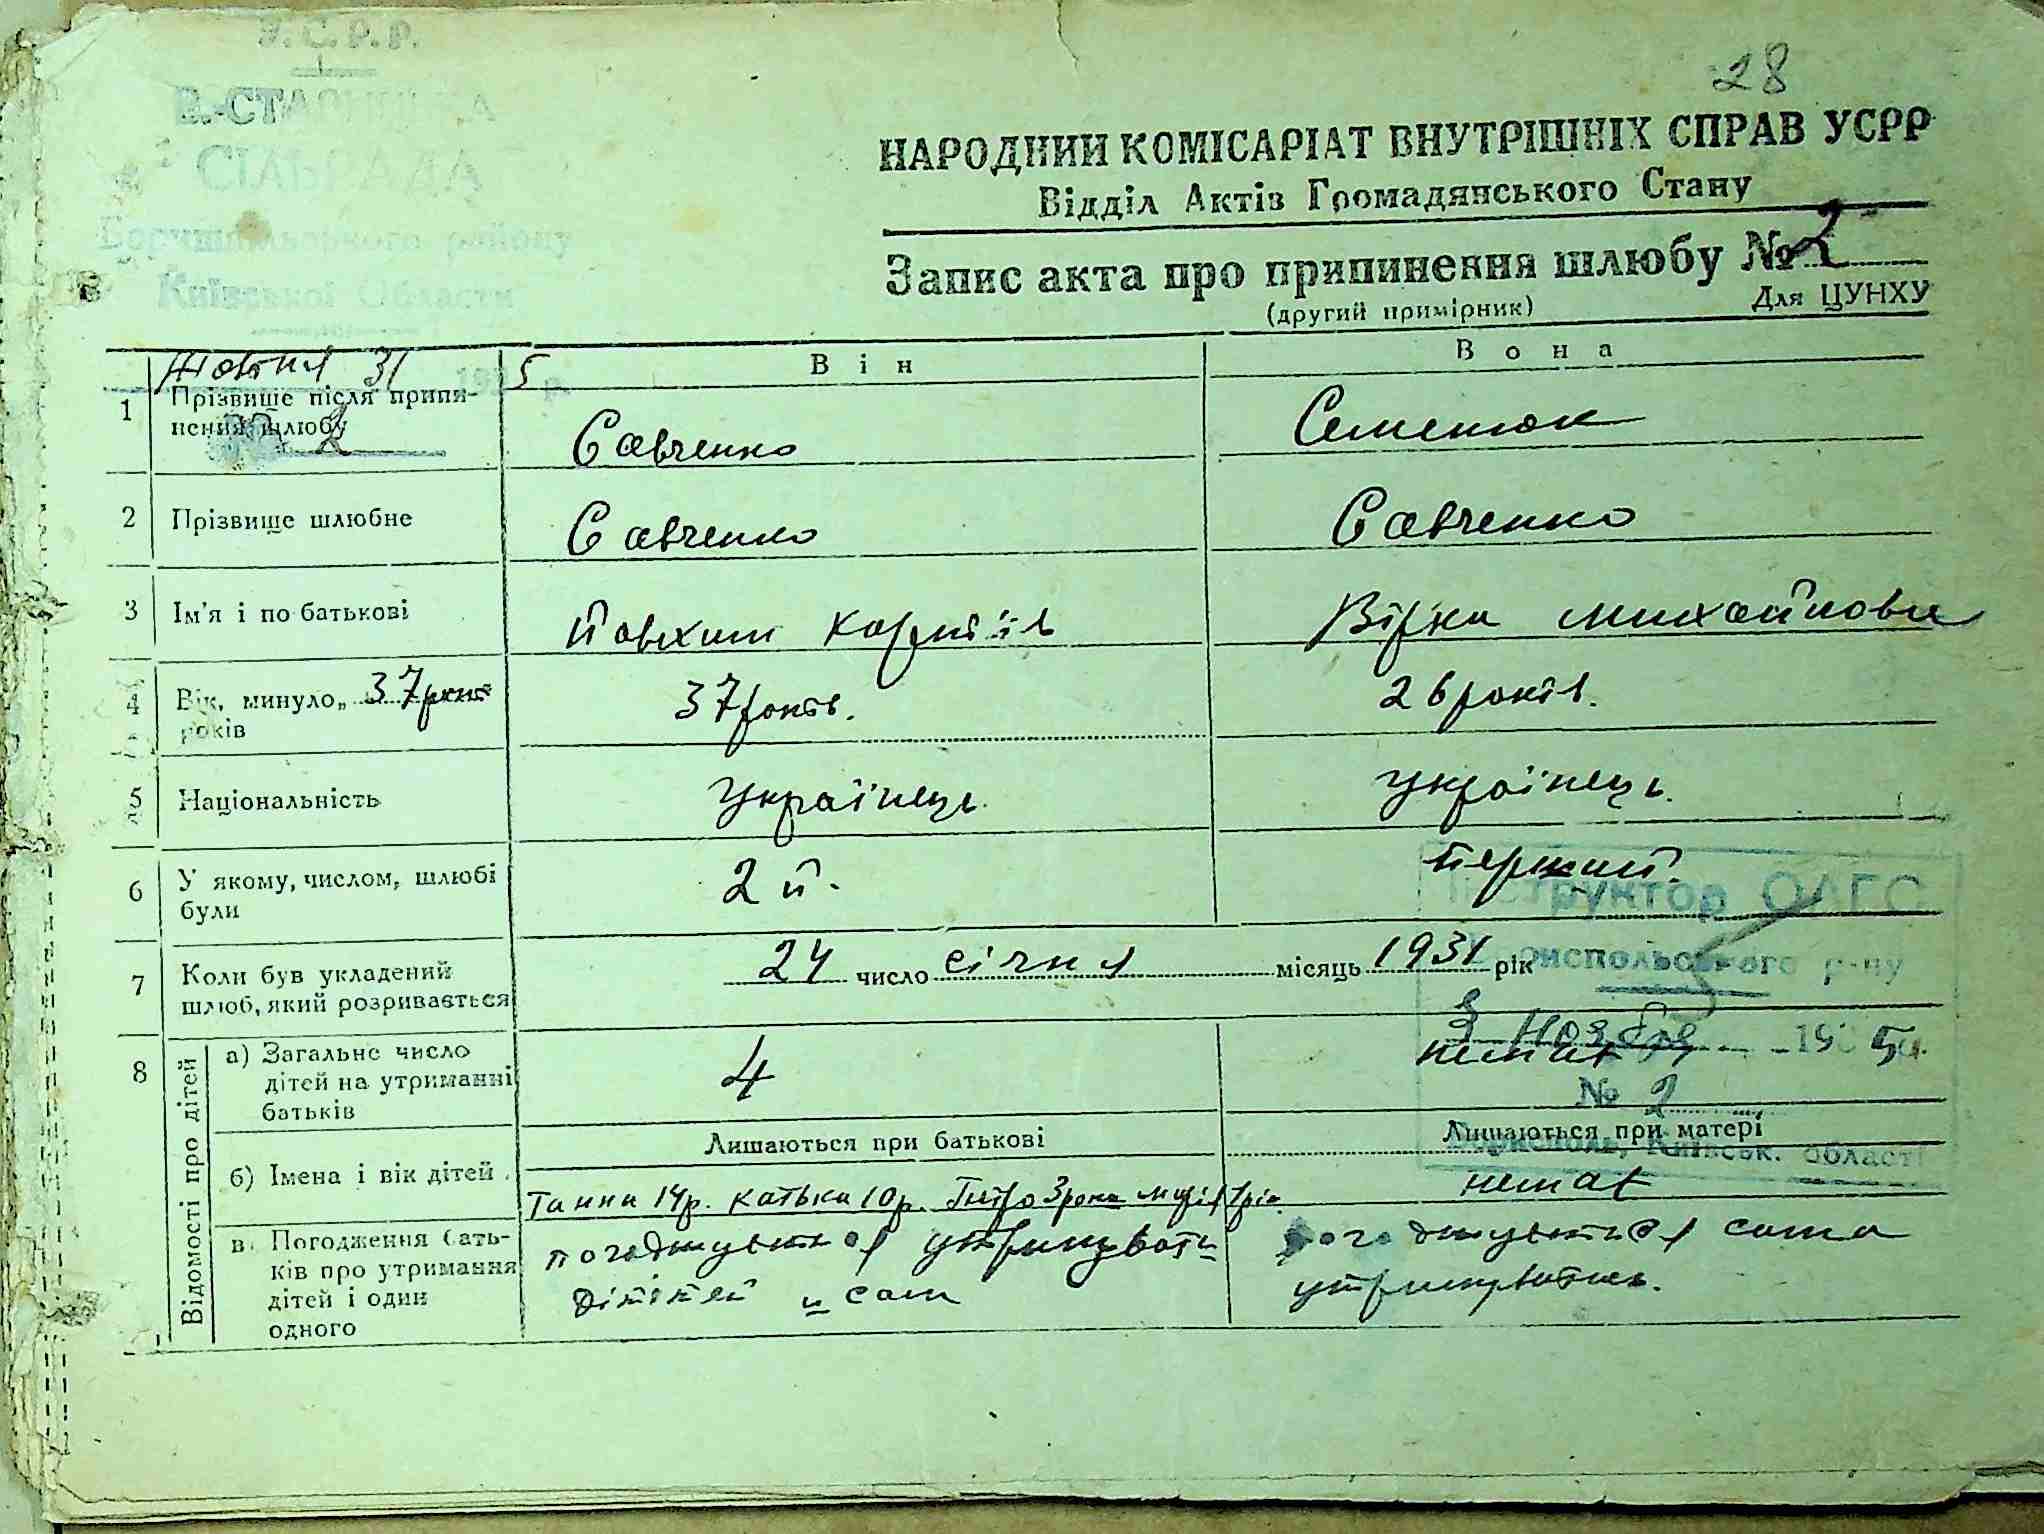 28
У.С.Р.Р.
В.-СТАРИЦЬКА
СІЛЬРАДА
Бориспільського району
Київської Области
НАРОДНИЙ КОМІСАРІАТ ВНУТРІШНІХ СПРАВ УСРР
Відділ Актів Громадянського Стану
Запис акта про припинення шлюбу № 2
(другий примірник) Для ЦУНХУ
Жовтня 31 193 5 р.
№ 2
Він Вона
1 Прізвище після припинення шлюбу Савченко Семенюк
2 Прізвище шлюбне Савченко Савченко
3 Ім'я і по батькові Вірка Михайловна
4 Вік, минуло 37 років 37 років. 26 років.
років
5 Національність українець українець
6 У якому, числом, шлюбі були 2 й. перший.
7 Коли був укладений шлюб, який розривається 24 число січня місяць 1931 рік
8 Відомості про дітей
а) Загальне число дітей на утриманні батьків 4 немає
Лишаються при батькові Лишаються при матері
б) Імена і вік дітей Ганна 14р. Катька 10р. Петро 3 роки Марія 1 рік. немає
в. Погодження батьків про утримання дітей і один одного погоджується утримувати дітей и сам погоджується сама утримуватись.
Інструктор ОАГС
Бориспольського р-ну
3 Ноября 193 5
№ 2
Бориспіль, Київськ. області